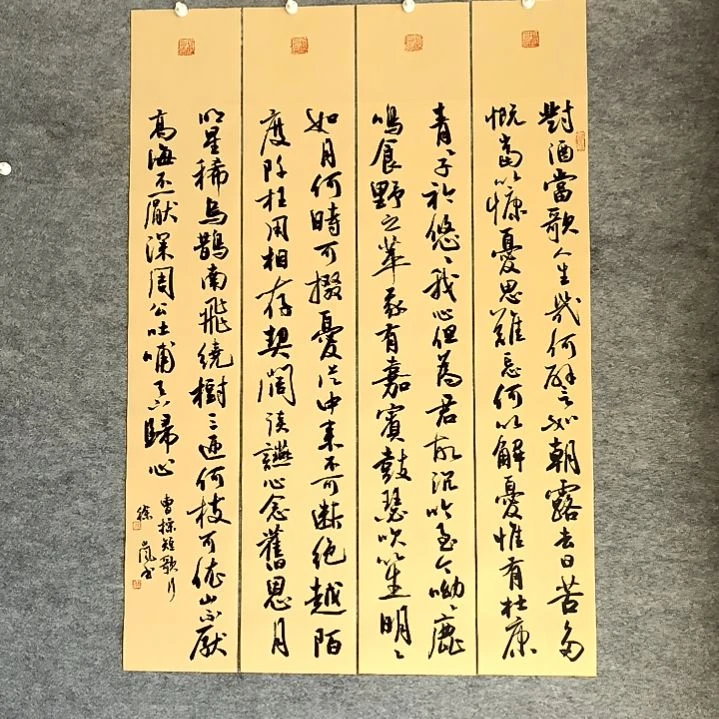 對酒當歌人生幾何譬如朝露去日苦多
慨當以慷憂思難忘何以解憂惟有杜康
青〻子衿悠〻我心但為君故沉吟至今呦〻鹿
鳴食野之苹我有嘉賓鼓瑟吹笙明〻
如月何時可掇憂從中來不可斷絕越陌
度阡枉用相存契闊談讌心念舊恩月
明星稀烏鵲南飛繞樹三匝何枝可依山不厭
高海不厭深周公吐哺天下歸心
曹操短歌行
嵐书
徐